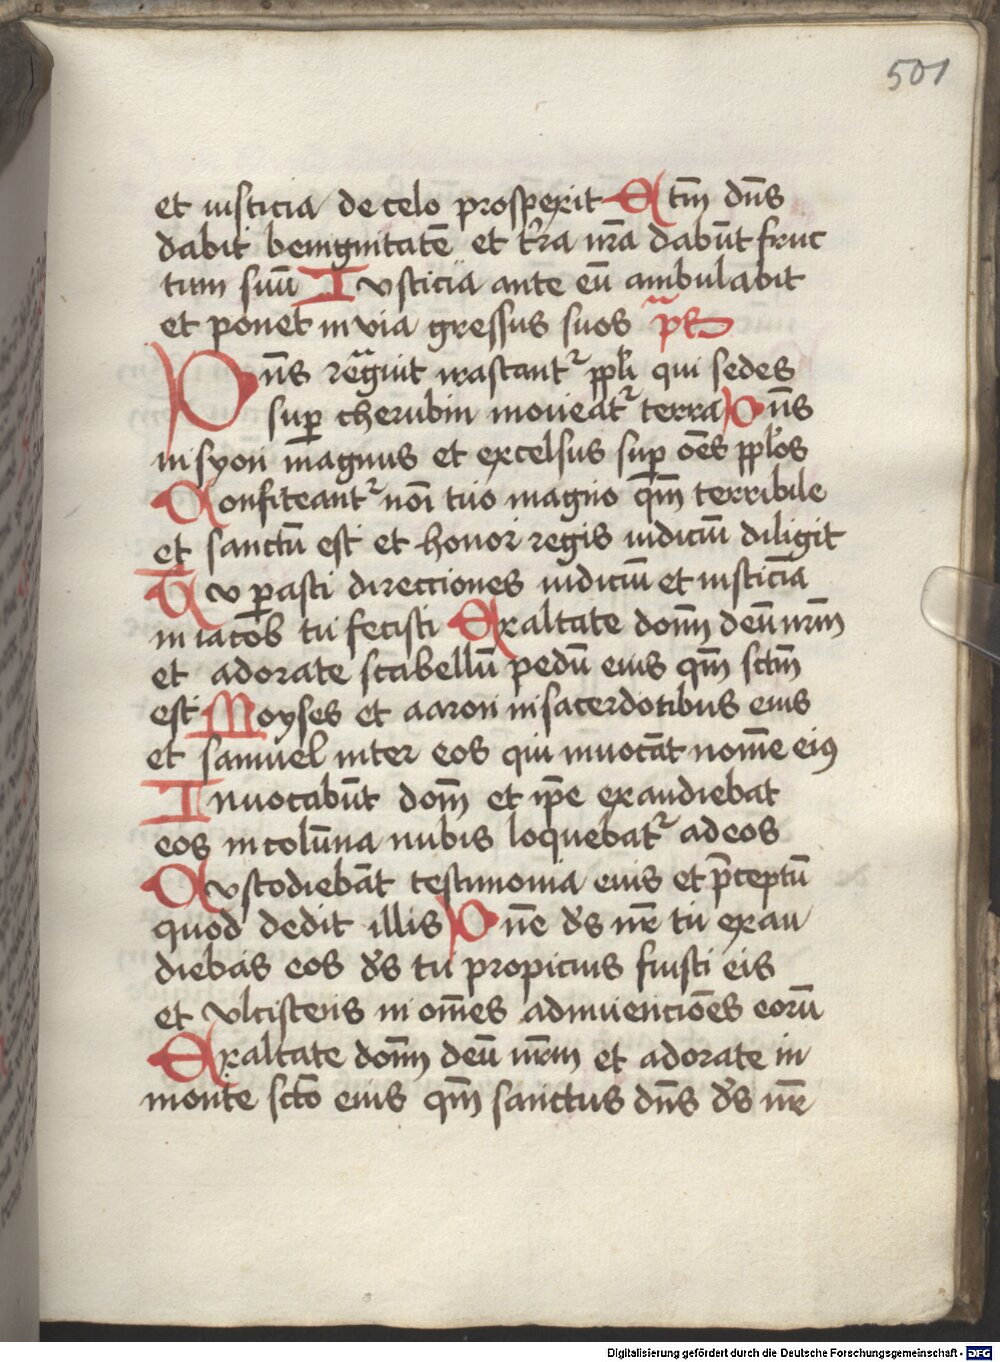 501
et iusticia de celo prosperit Etm̄ dn̄s
dabit benignitatē et tr̄ra nr̄a dabūt fruc
tum suū Iusticia ante eū ambulabit
et ponet in via gressus suos ps
Dn̄s regͣuit irascantᷣ ppl̄i qui sedes
sup̄ cherubin moueatᷣ terra Dn̄s
in syon magnus et excelsus sup̄ oēs ppl̄os
Confiteantᷣ nōi tuo magno qm̄ terribile
et sanctū est et honor regis iudiciū diligit
Tu ꝑasti direcciones iudiciū et iusticiā
in iacob tu fecisti Exaltate domm̄ deū nrm̄
et adorate scabellū pedū eius qm̄ sctm̄
est Moyses et aaron in sacerdotibus eius
et samuel inter eos qui inuocāt nomē eiꝯ
Inuocabūt dom̄ et ip̄e exaudiebat
eos in colūna nubis loquebatᷣ ad eos
Custodiebāt testimonia eius et p̄ceptū
quod dedit illis Dn̄e ds̄ nr̄ tu exau
diebas eos ds̄ tu propicius fuisti eis
et vlciscens in om̄es adinuenciōes eorū
Exaltate domm̄ deū nr̄m et adorate in
monte sctō eius qm̄ sanctus dn̄s ds̄ nr̄
Digitalisierung gefördert durch die Deutsche Forschungsgemeinschaft - DFG